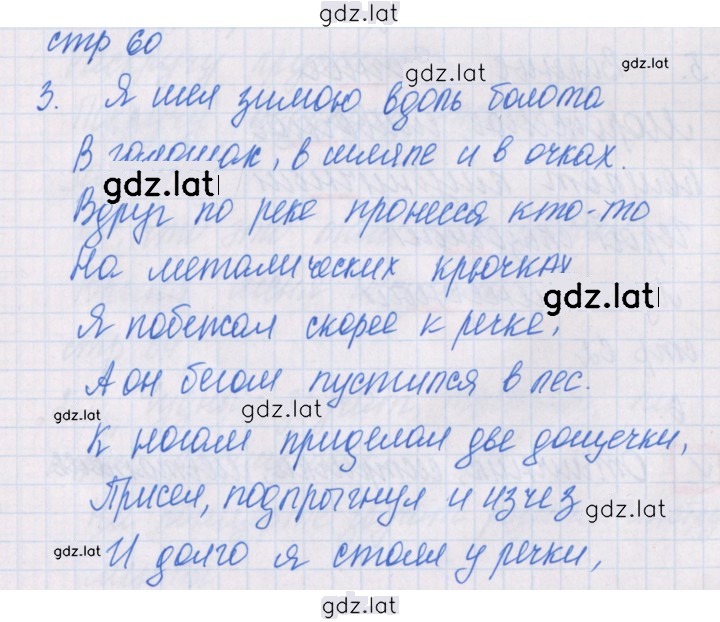 gdz.lat
стр 60
gdz.lat
gdz.lat
3. Я шел зимою вдоль болота
В галошах, в шляпе и в очках.
gdz.lat
Вдруг по реке пронесся кто-то
На металических крючках
gdz.lat
Я побежал скорее к речке,
А он бегом пустился в лес.
gdz.lat
gdz.lat
К ногам приделал две дощечки,
Присел, подпрыгнул и изчез
gdz.lat
gdz.lat
И долго я стоял у речки,
gdz.lat